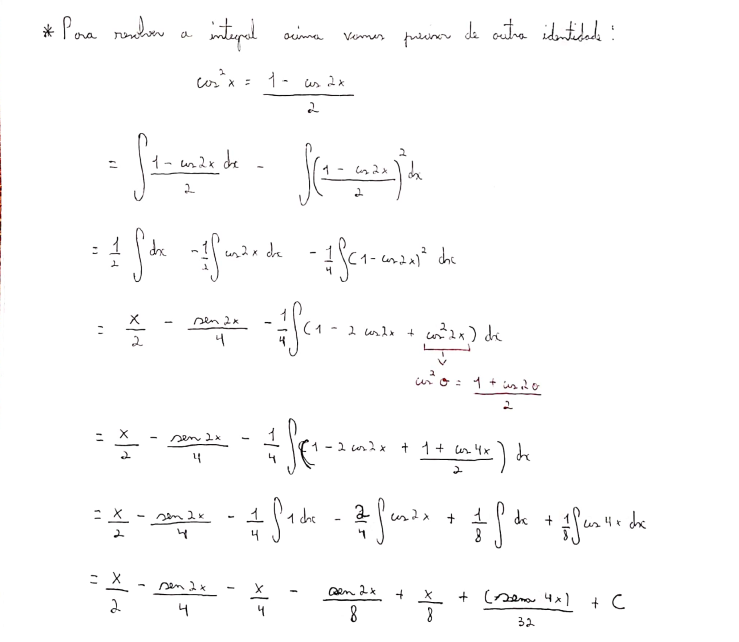 * Para resolver a integral acima vamos precisar de outra identidade:
cos²x = (1 - cos 2x)/2
= ∫ (1 - cos 2x)/2 dx - ∫ ((1 - cos 2x)/2)² dx
= 1/2 ∫ dx - 1/2 ∫ cos 2x dx - 1/4 ∫ (1 - cos 2x)² dx
= x/2 - sen 2x/4 - 1/4 ∫ (1 - 2 cos 2x + cos² 2x) dx
cos² σ = (1 + cos 2σ)/2
= x/2 - sen 2x/4 - 1/4 ∫ (1 - 2 cos 2x + (1 + cos 4x)/2) dx
= x/2 - sen 2x/4 - 1/4 ∫ 1 dx - 2/4 ∫ cos 2x + 1/8 ∫ dx + 1/8 ∫ cos 4x dx
= x/2 - sen 2x/4 - x/4 - sen 2x/8 + x/8 + (sen 4x)/32 + C